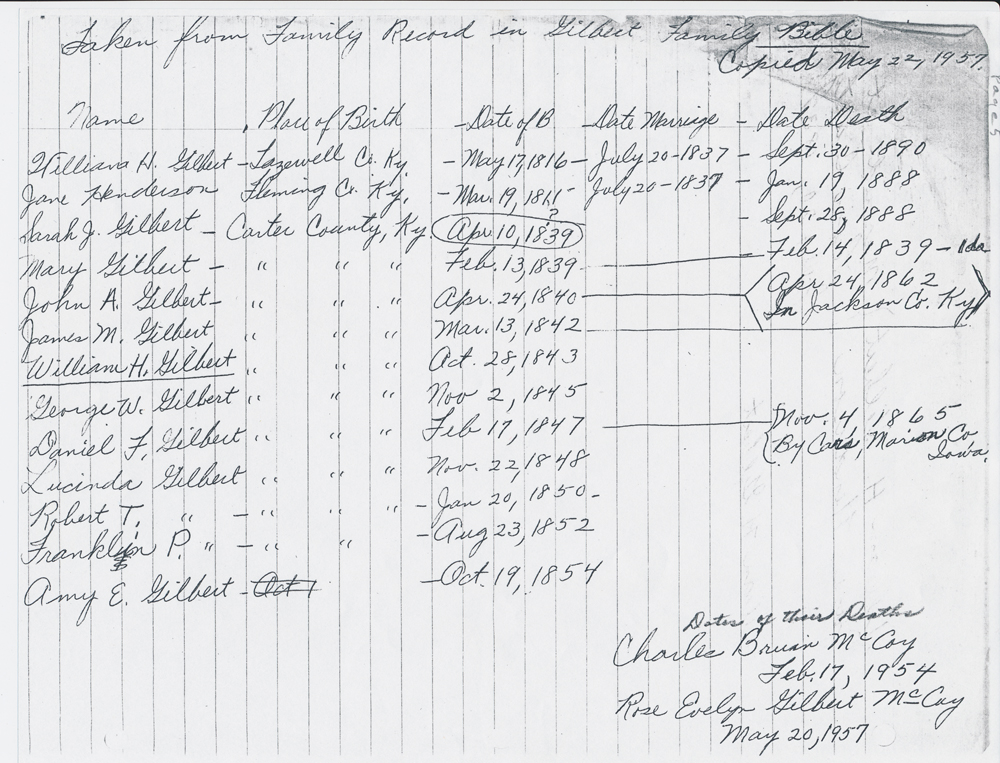 Taken from Family Record in Gilbert Family Bible
Copied May 22, 1957.
Page 5
Name , Place of Birth - Date of B - Date Marriage - Date Death
William H. Gilbert - Tazewell Co. Ky. - May 17, 1816 - July 20-1837 - Sept. 30-1890
Jane Henderson Fleming Co. Ky. - Mar. 19, 1815 July 20-1837 - Jan. 19, 1888
?
Sarah J. Gilbert - Carter County, Ky. Apr. 10, 1839 - Sept. 28, 1888
Mary Gilbert - " " " Feb. 13, 1839 - Feb. 14, 1839 - 1da
John A. Gilbert - " " " Apr. 24, 1840 - Apr 24, 1862
In Jackson Co. Ky
James M. Gilbert " " " Mar. 13, 1842
William H. Gilbert " " " Oct. 28, 1843
George W. Gilbert " " " Nov 2, 1845
Daniel F. Gilbert " " " Feb 17, 1847 Nov. 4 1865
By Cars, Marion Co
Iowa.
Lucinda Gilbert " " " Nov. 22, 1848
Robert T. " - " " " - Jan 20, 1850 -
Franklin P. " - " " - Aug 23, 1852
Amy E. Gilbert - Oct 1 - Oct. 19, 1854
Dates of their Deaths
Charles Bruin McCoy
Feb. 17, 1954
Rose Evelyn Gilbert McCoy
May 20, 1957